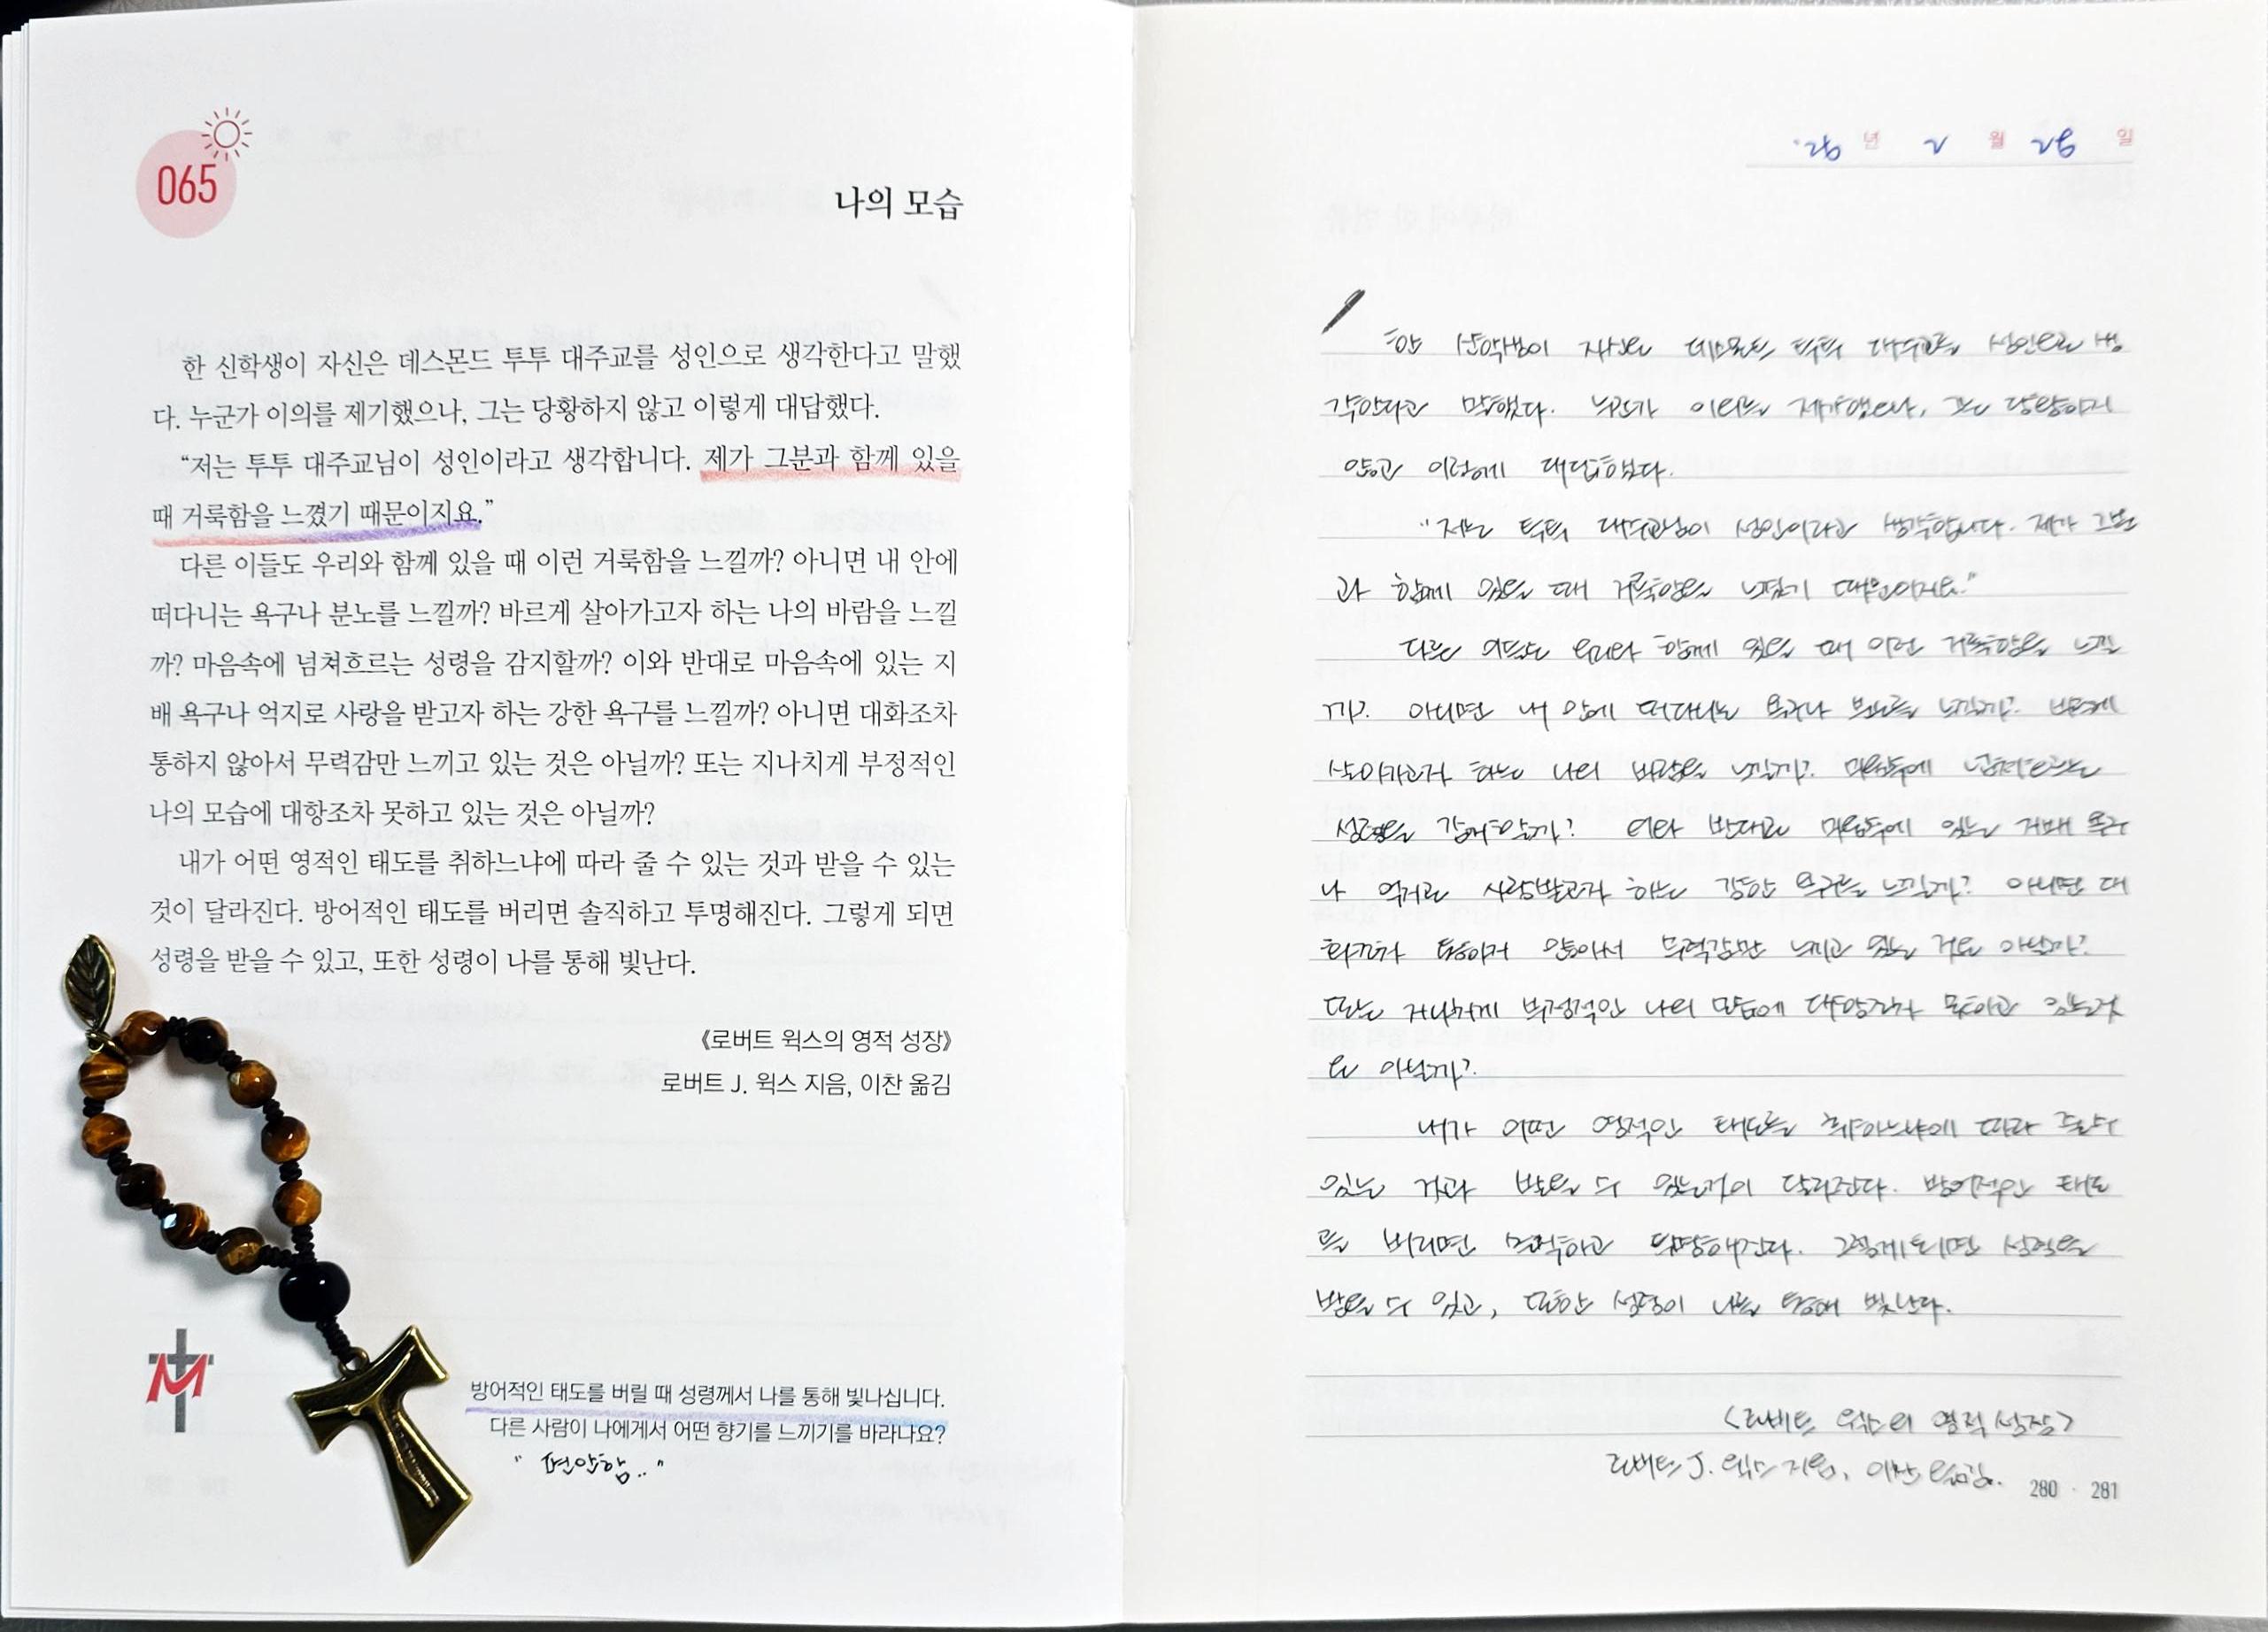 065
나의 모습
한 신학생이 자신은 데스몬드 투투 대주교를 성인으로 생각한다고 말했
다. 누군가 이의를 제기했으나, 그는 당황하지 않고 이렇게 대답했다.
“저는 투투 대주교님이 성인이라고 생각합니다. 제가 그분과 함께 있을
때 거룩함을 느꼈기 때문이지요.”
다른 이들도 우리와 함께 있을 때 이런 거룩함을 느낄까? 아니면 내 안에
떠다니는 욕구나 분노를 느낄까? 바르게 살아가고자 하는 나의 바람을 느낄
까? 마음속에 넘쳐흐르는 성령을 감지할까? 이와 반대로 마음속에 있는 지
배 욕구나 억지로 사랑을 받고자 하는 강한 욕구를 느낄까? 아니면 대화조차
통하지 않아서 무력감만 느끼고 있는 것은 아닐까? 또는 지나치게 부정적인
나의 모습에 대항조차 못하고 있는 것은 아닐까?
내가 어떤 영적인 태도를 취하느냐에 따라 줄 수 있는 것과 받을 수 있는
것이 달라진다. 방어적인 태도를 버리면 솔직하고 투명해진다. 그렇게 되면
성령을 받을 수 있고, 또한 성령이 나를 통해 빛난다.
《로버트 윅스의 영적 성장》
로버트 J. 윅스 지음, 이찬 옮김
M
방어적인 태도를 버릴 때 성령께서 나를 통해 빛나십니다.
다른 사람이 나에게서 어떤 향기를 느끼기를 바라나요?
" 편안함.. "
년 2 월 일
한 신학생이 자신은 데스몬드 투투 대주교를 성인으로 생
각한다고 말했다. 누군가 이의를 제기했으나, 그는 당황하지
않고 이렇게 대답했다.
"저는 투투 대주교님이 성인이라고 생각합니다. 제가 그분
과 함께 있을 때 거룩함을 느꼈기 때문이지요."
다른 이들도 우리와 함께 있을 때 이런 거룩함을 느낄
까? 아니면 내 안에 떠다니는 욕구나 분노를 느낄까? 바르게
살아가고자 하는 나의 바람을 느낄까? 마음속에 넘쳐흐르는
성령을 감지할까? 이와 반대로 마음속에 있는 지배 욕구
나 억지로 사랑받고자 하는 강한 욕구를 느낄까? 아니면 대
화조차 통하지 않아서 무력감만 느끼고 있는 것은 아닐까?
또는 지나치게 부정적인 나의 모습에 대항조차 못하고 있는것
은 아닐까?
내가 어떤 영적인 태도를 취하느냐에 따라 줄수
있는 것과 받을 수 있는것이 달라진다. 방어적인 태도
를 버리면 솔직하고 투명해진다. 그렇게되면 성령을
받을 수 있고, 또한 성령이 나를 통해 빛난다.
<로버트 윅스의 영적 성장>
로버트 J. 윅스 지음, 이찬 옮김.
280 · 281